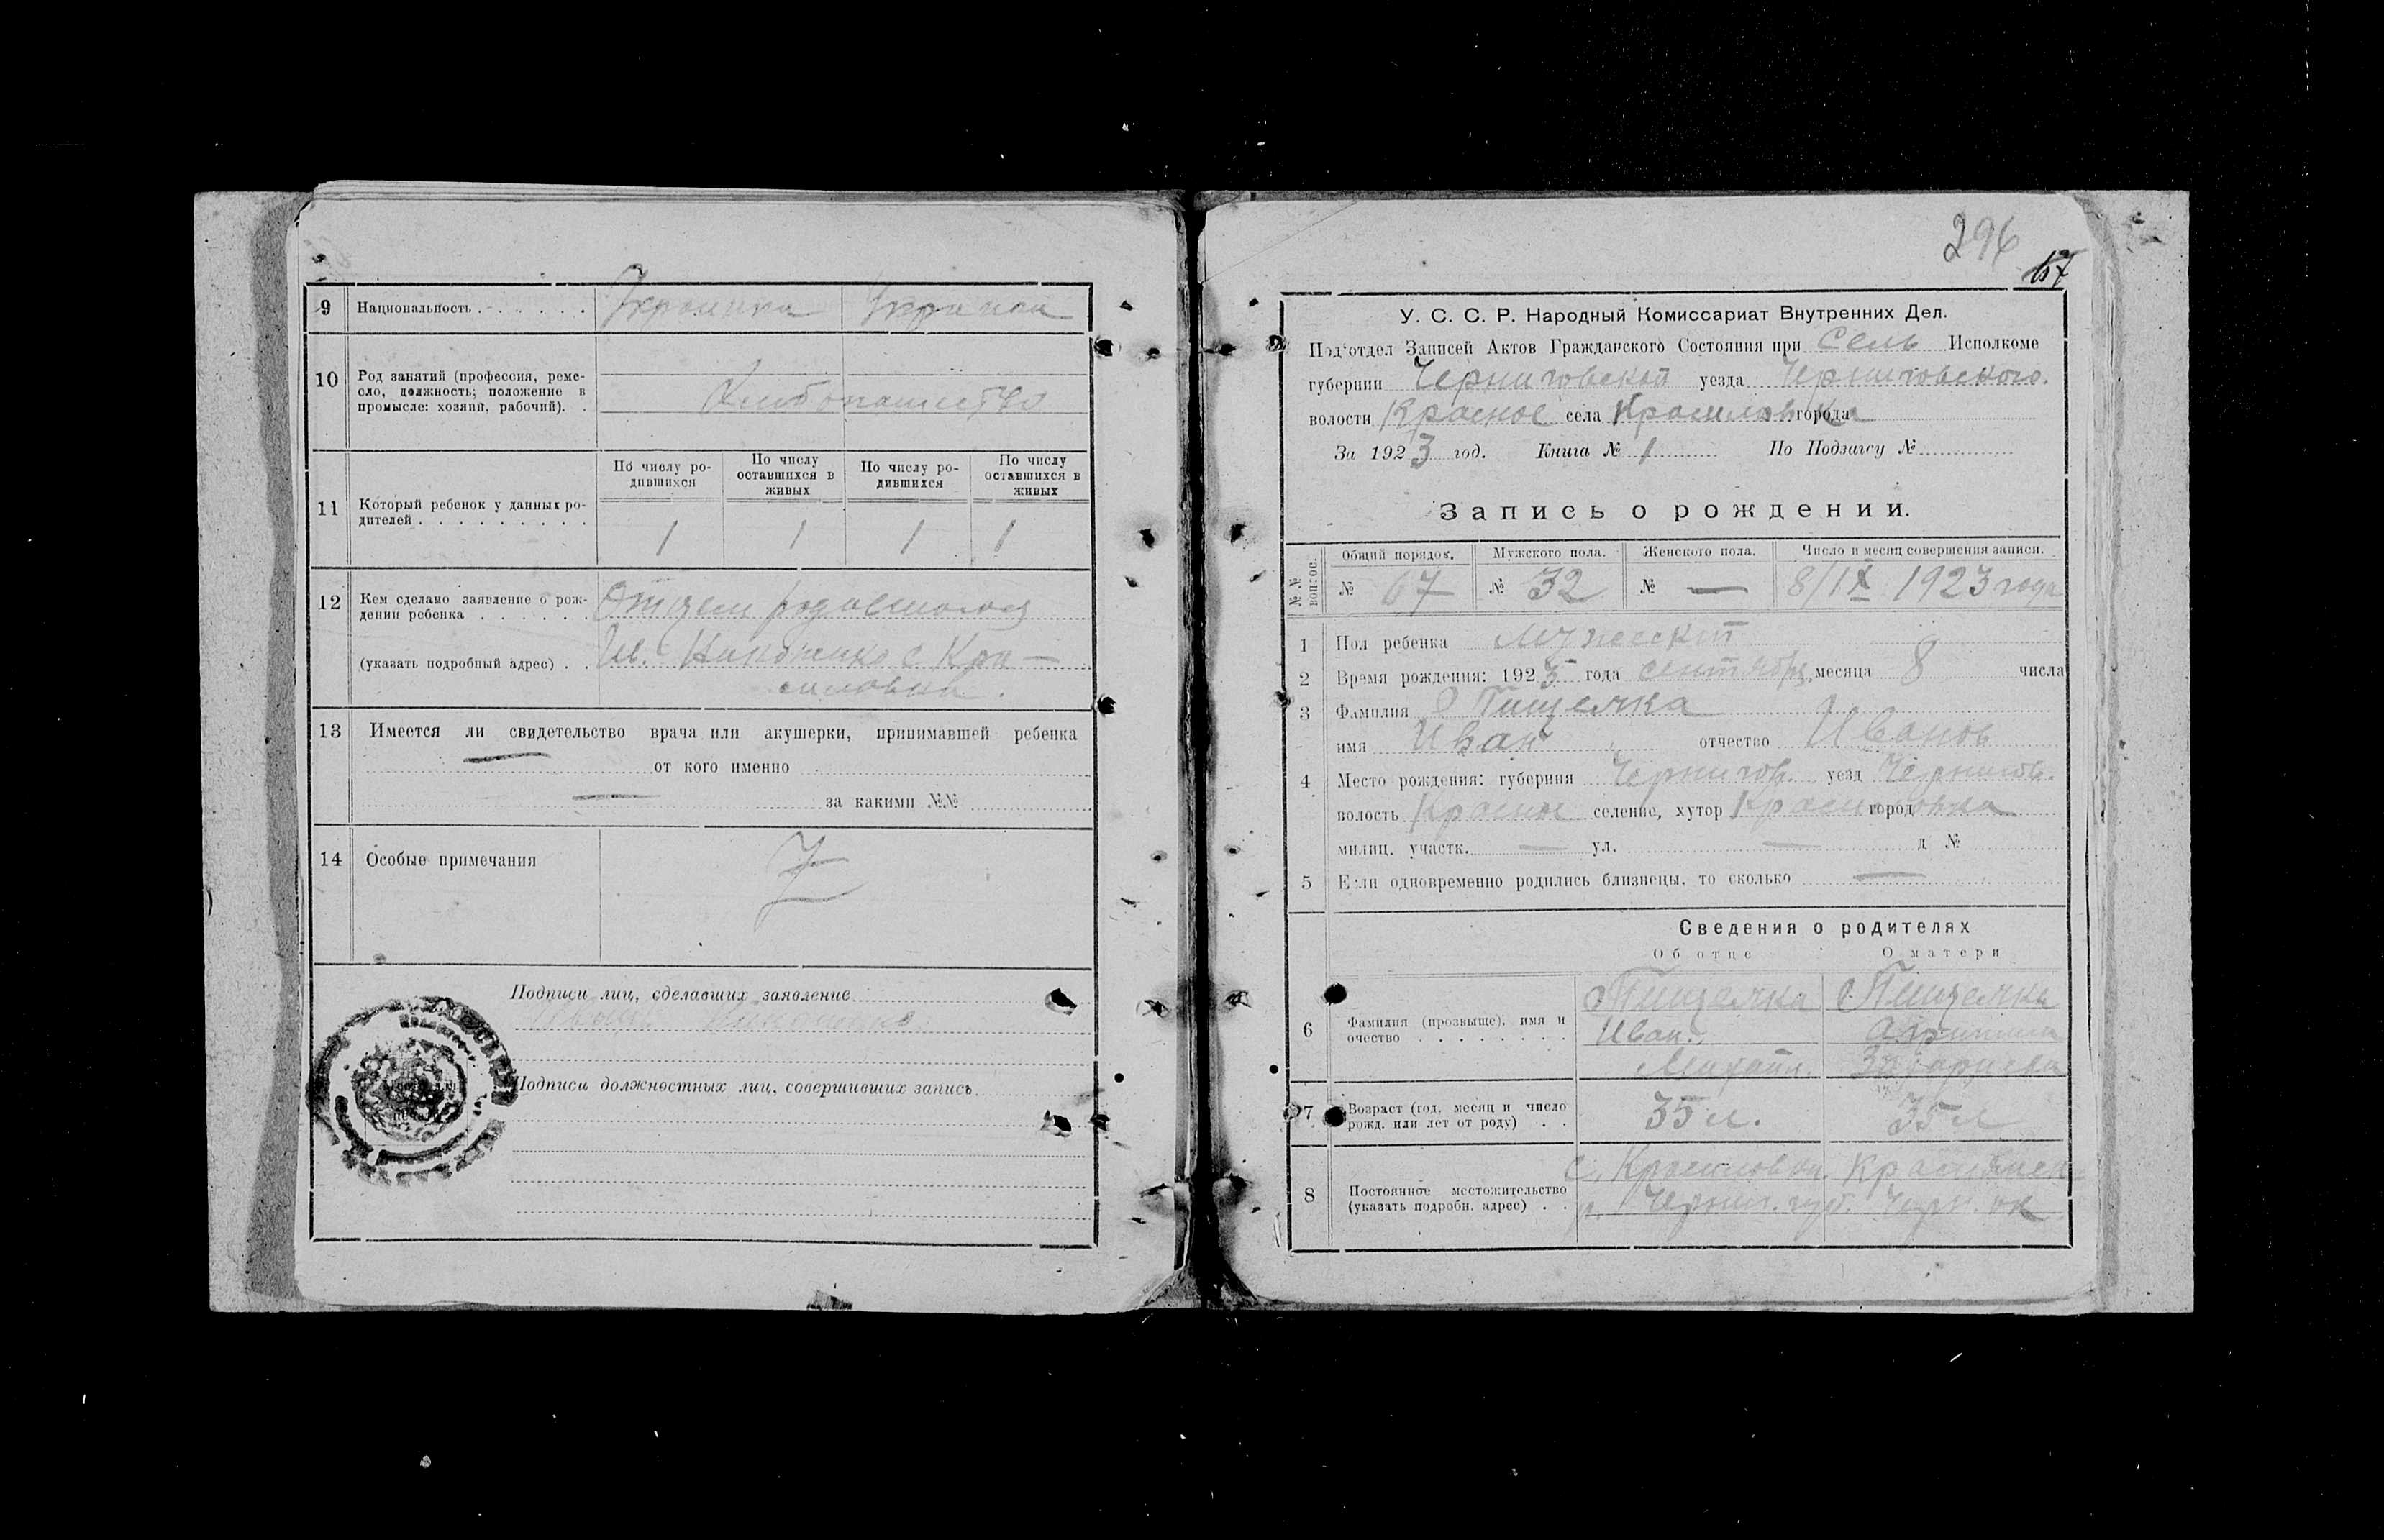 9 Национальность . . . . . . Украинка
10 Род занятий (профессия, реме-
сло, должность; положение в
промысле: хозяин, рабочий). .
Хлебопашество
11 Который ребенок у данных ро-
дителей . . . . . . . . . .
По числу ро-
дившихся
По числу
оставшихся в
живых
По числу ро-
дившихся
По числу
оставшихся в
живых
1 1 1 1
12 Кем сделано заявление о рож-
дении ребенка . . . . . . Отцем
(указать подробный адрес) . . Ив. с Кра—
силовка.
13 Имеется ли свидетельство врача или акушерки, принимавшей ребенка
— от кого именно
— за какими №№
14 Особые примечания
Подписи лиц, сделавших заявление
Иван
Подписи должностных лиц, совершивших запись
296
67
У. С. С. Р. Народный Комиссариат Внутренних Дел.
Под‘отдел Записей Актов Гражданского Состояния при Сель Исполкоме
губернии Черниговской уезда Черниговского.
волости Красное села Красиловка города
За 1923 год. Книга № 1 По Подзагсу №
Запись о рождении.
№№ вопрос.
Общий порядок. Мужского пола. Женского пола. Число и месяц совершения записи.
№ 67 № 32 № — 8/IX 1923 года
1 Пол ребенка Мужеский
2 Время рождения: 1923 года сентября месяца 8 числа
3 Фамилия Пищелка
имя Иван отчество Иванов
4 Место рождения: губерния Чернигов. уезд Чернигов.
волость Красное селение, хутор Красиловка город
милиц. участк. — ул. — д №
5 Если одновременно родились близнецы, то сколько —
Сведения о родителях
Об отце О матери
6 Фамилия (прозвыще), имя и
очество . . . . . . . .
Пищелка Пищелка
Иван
Михайл.
7 Возраст (год, месяц и число
рожд. или лет от роду) . .
35 л. 35 л
8 Постоянное местожительство
(указать подробн. адрес) . .
с. Красиловка.
Черниг. губ.